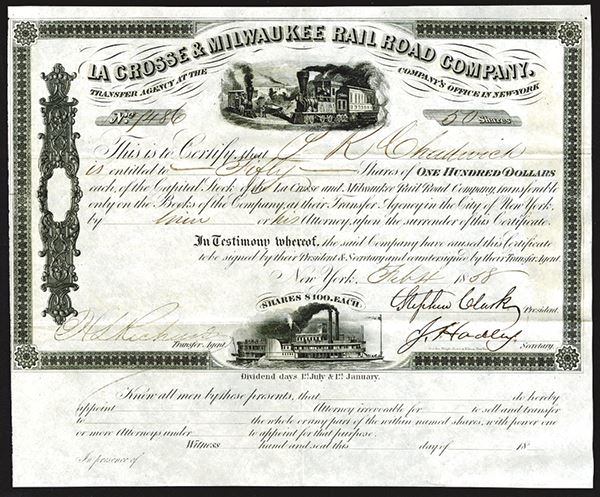 LA CROSSE & MILWAUKEE RAIL ROAD COMPANY.
TRANSFER AGENCY AT THE COMPANY'S OFFICE IN NEW-YORK
No. 1486 50 Shares
This is to Certify that K Chadwick
is entitled to Fifty Shares of ONE HUNDRED DOLLARS
each, of the Capital Stock of the La Crosse and Milwaukee Rail Road Company, transferable
only on the Books of the Company, at their Transfer Agency in the City of New York,
by him or his Attorney, upon the surrender of this Certificate.
In Testimony whereof, the said Company have caused this Certificate
to be signed by their President & Secretary and countersigned by their Transfer Agent.
New York, Feb 4 1858
SHARES $100. EACH.
Stephen Clark President.
Transfer Agent. J. Hadley Secretary.
Dividend days 1st. July & 1st. January.
Know all men by these presents, that do hereby
appoint Attorney irrevocable for to sell and transfer
to the whole or any part of the within named shares, with power one
or more Attorneys under to appoint for that purpose.
Witness hand and seal this day of 18
In presence of